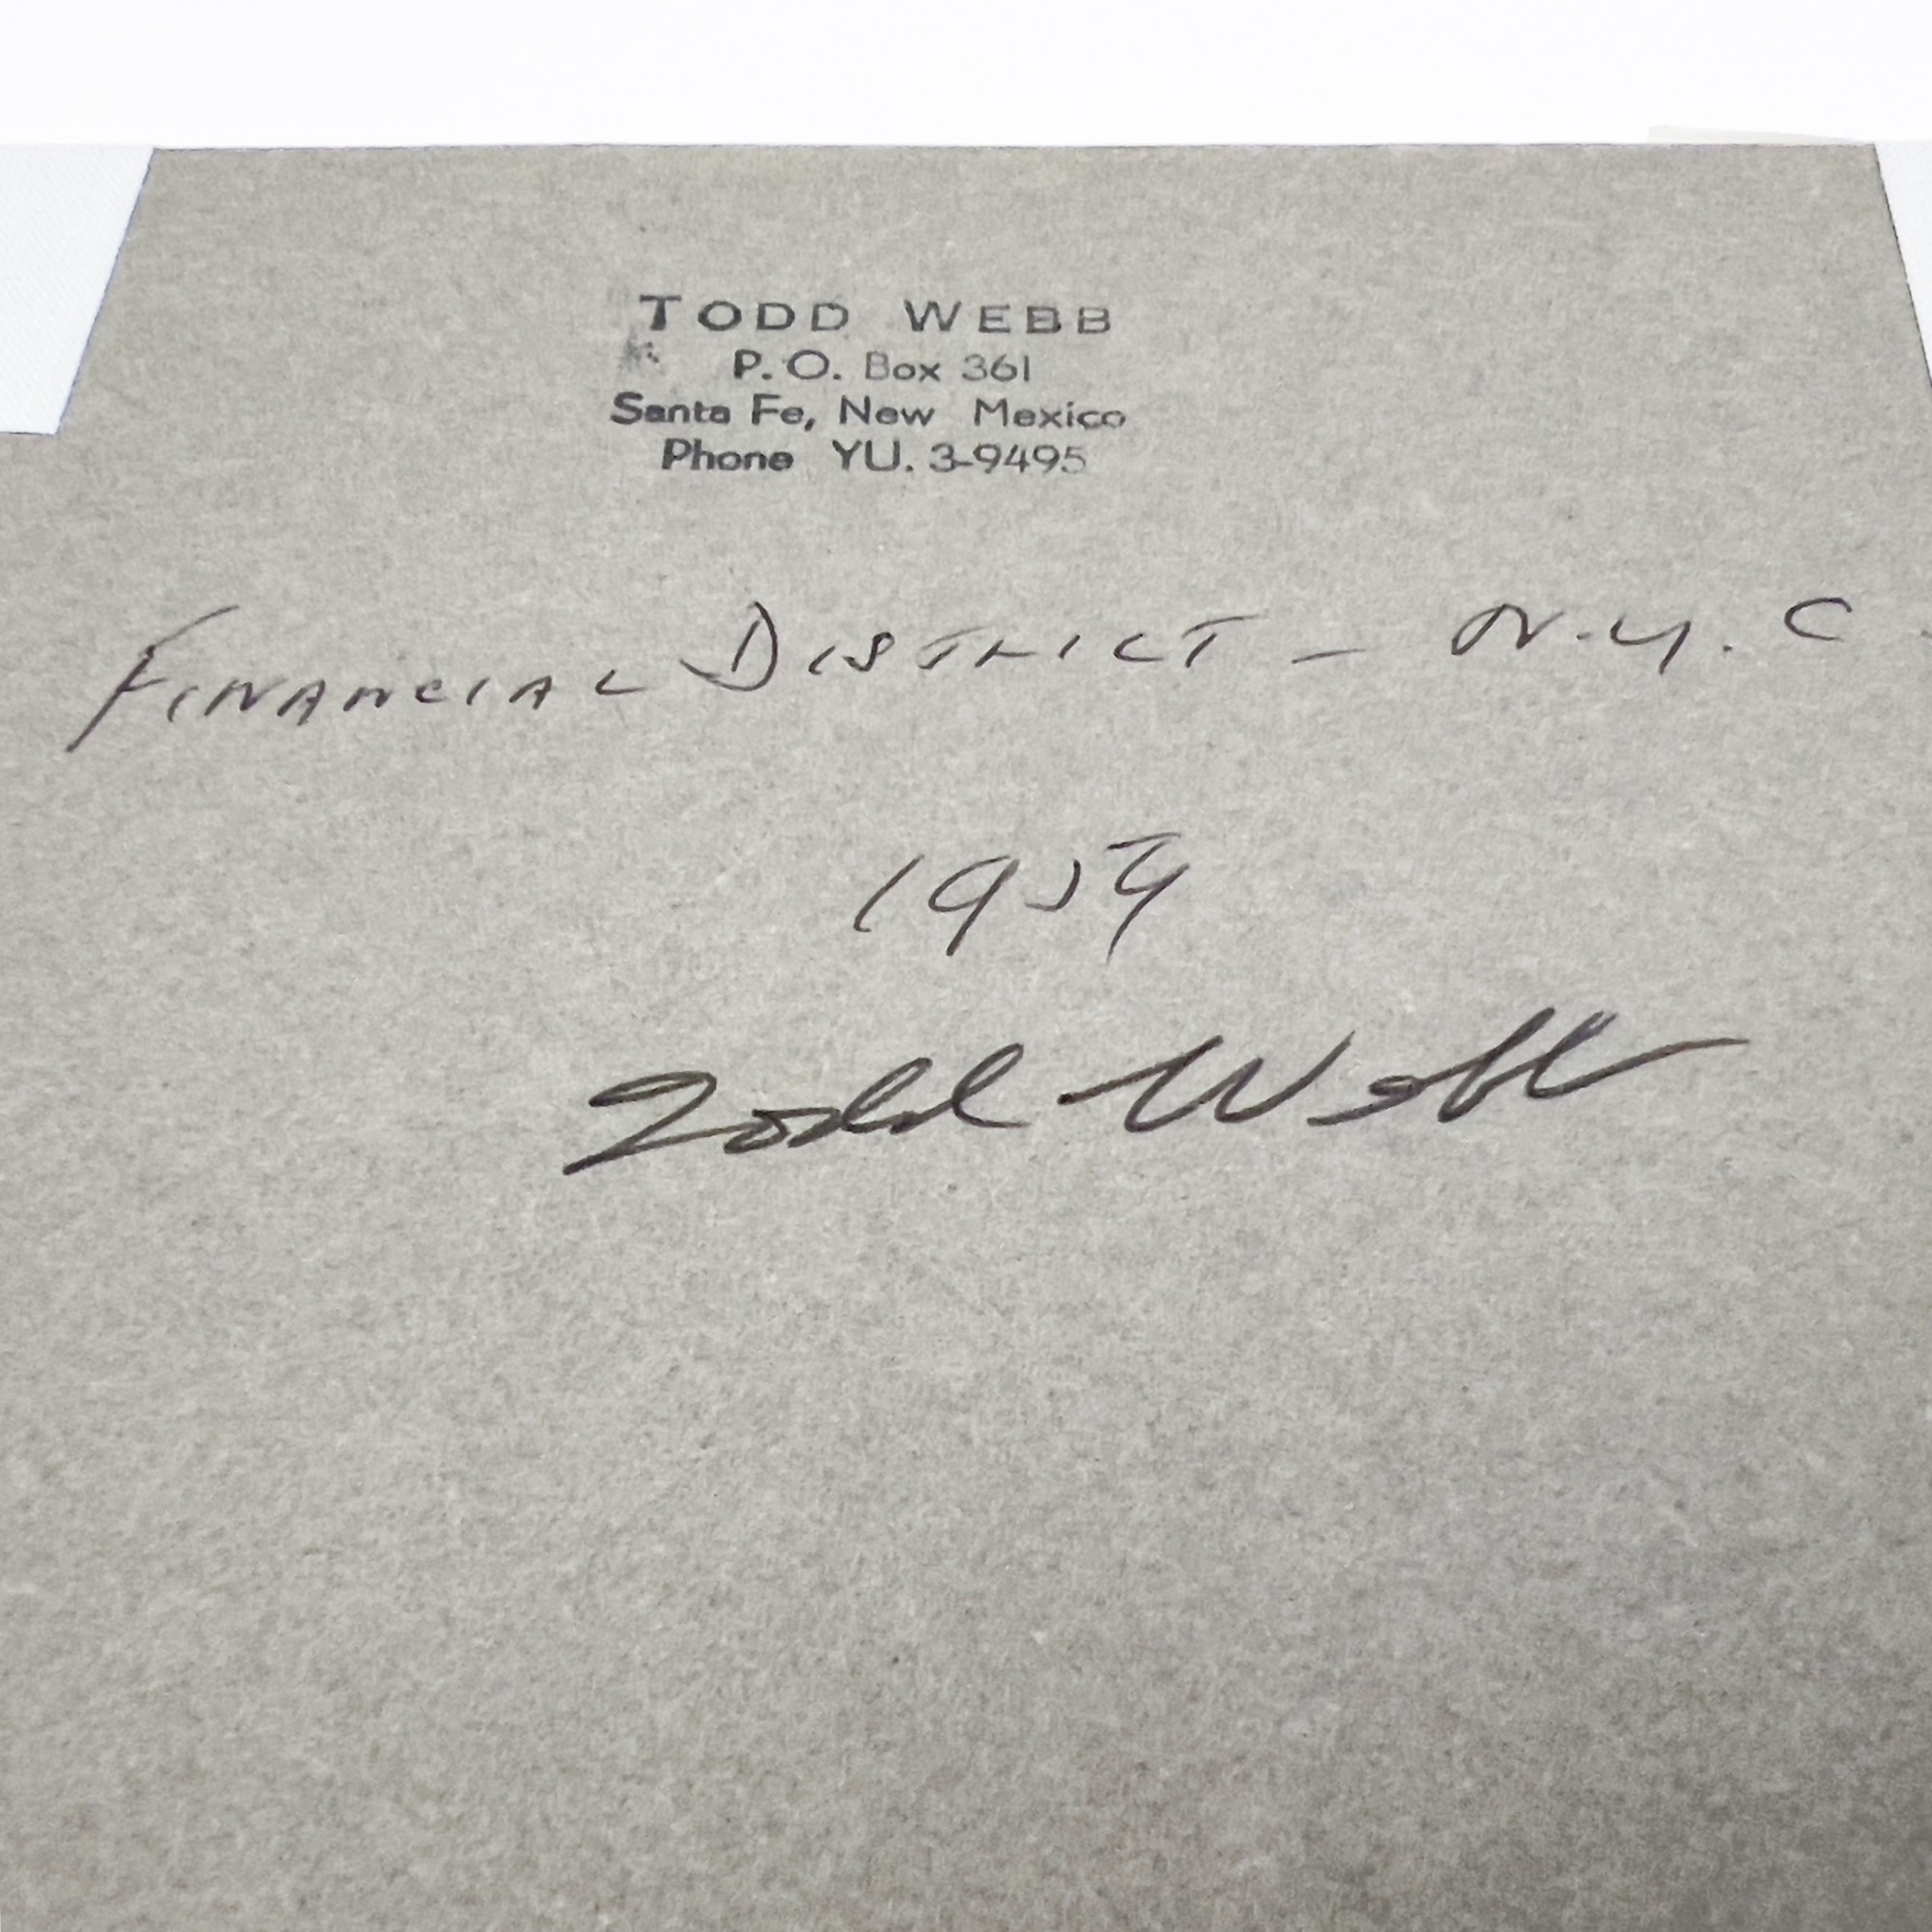 TODD WEBB
P. O. Box 361
Santa Fe, New Mexico
Phone YU. 3-9495
FINANCIAL DISTRICT – N.Y.C.
1959
Todd Webb